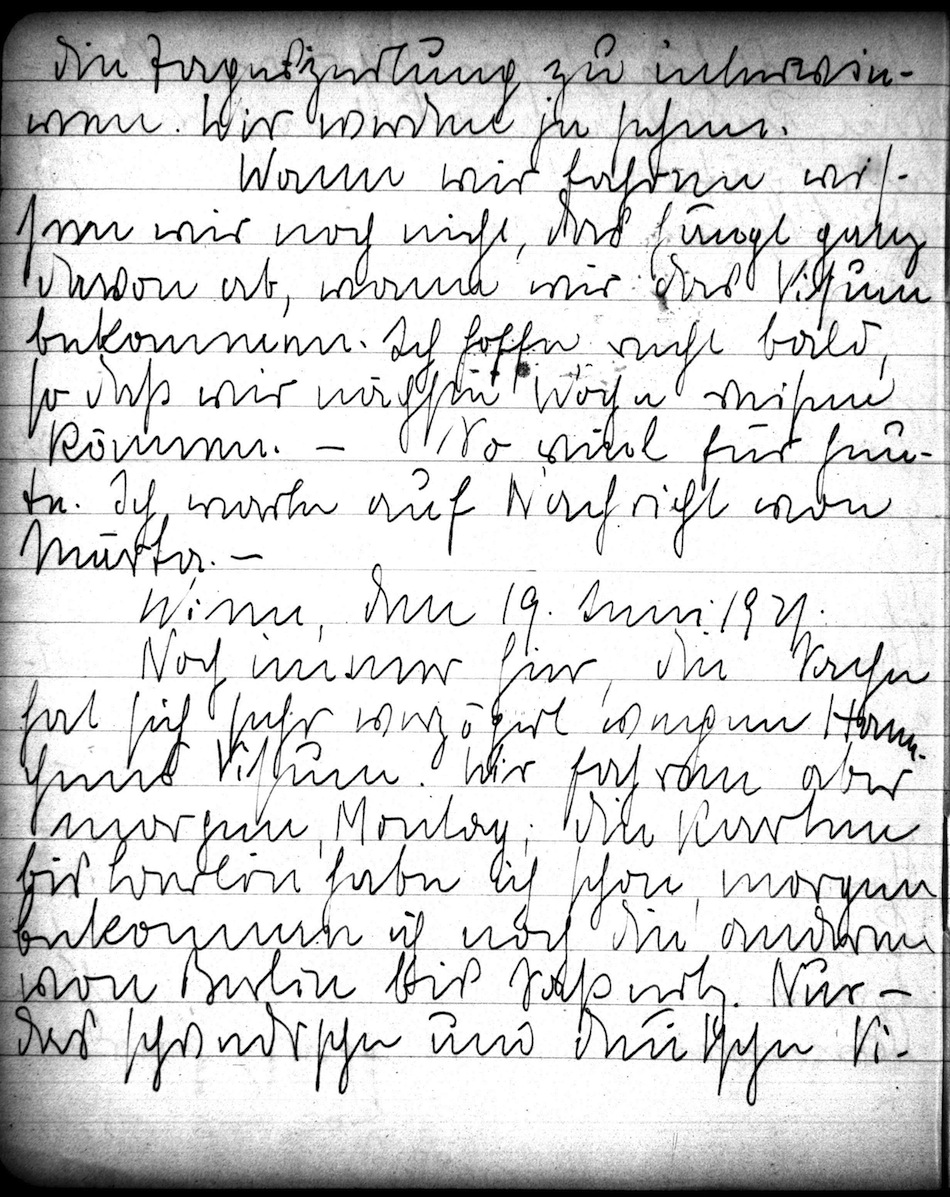 die Tageszeitung zu interwie-
wen. Wir werden ja sehen.
Wann wir fahren wis-
sen wir noch nicht, das hängt ganz
davon ab, wann wir das Visum
bekommen. Ich hoffe recht bald,
so daß wir nächste Woche reisen
können. – So viel für heu-
te. Ich warte auf Nachricht von
Mutter. –
Wien, den 19. Juni 1921.
Noch immer hier, die Sache
hat sich sehr verzögert wegen Hann-
chens Visum. Wir fahren aber
morgen, Montag, die Karten
bis Berlin habe ich schon, morgen
bekommen ich noch die anderen
von Berlin bis Saßnitz. Nur –
das schwedische und deutsche Vi-